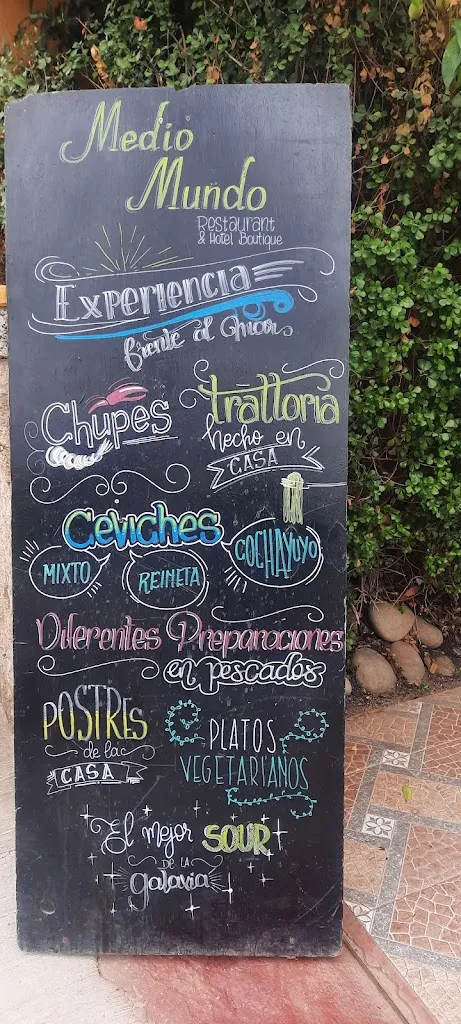 Medio
Mundo
Restaurant
& Hotel Boutique
Experiencia
frente al mar
Chupes
trattoria
hecho en
CASA
Ceviches
MIXTO
REINETA
COCHAYUYO
Diferentes Preparaciones
en pescados
POSTRES
de la
CASA
PLATOS
VEGETARIANOS
El mejor SOUR
DE LA
galaxia